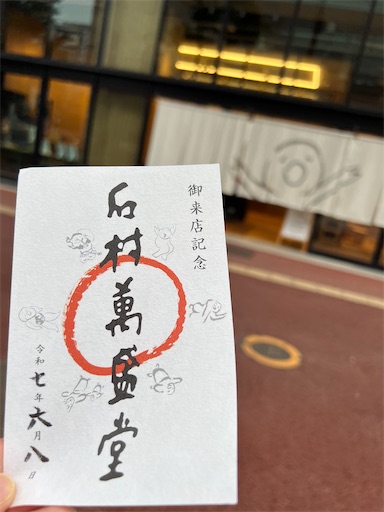 御来店記念
石村萬盛堂
令和七年六月八日